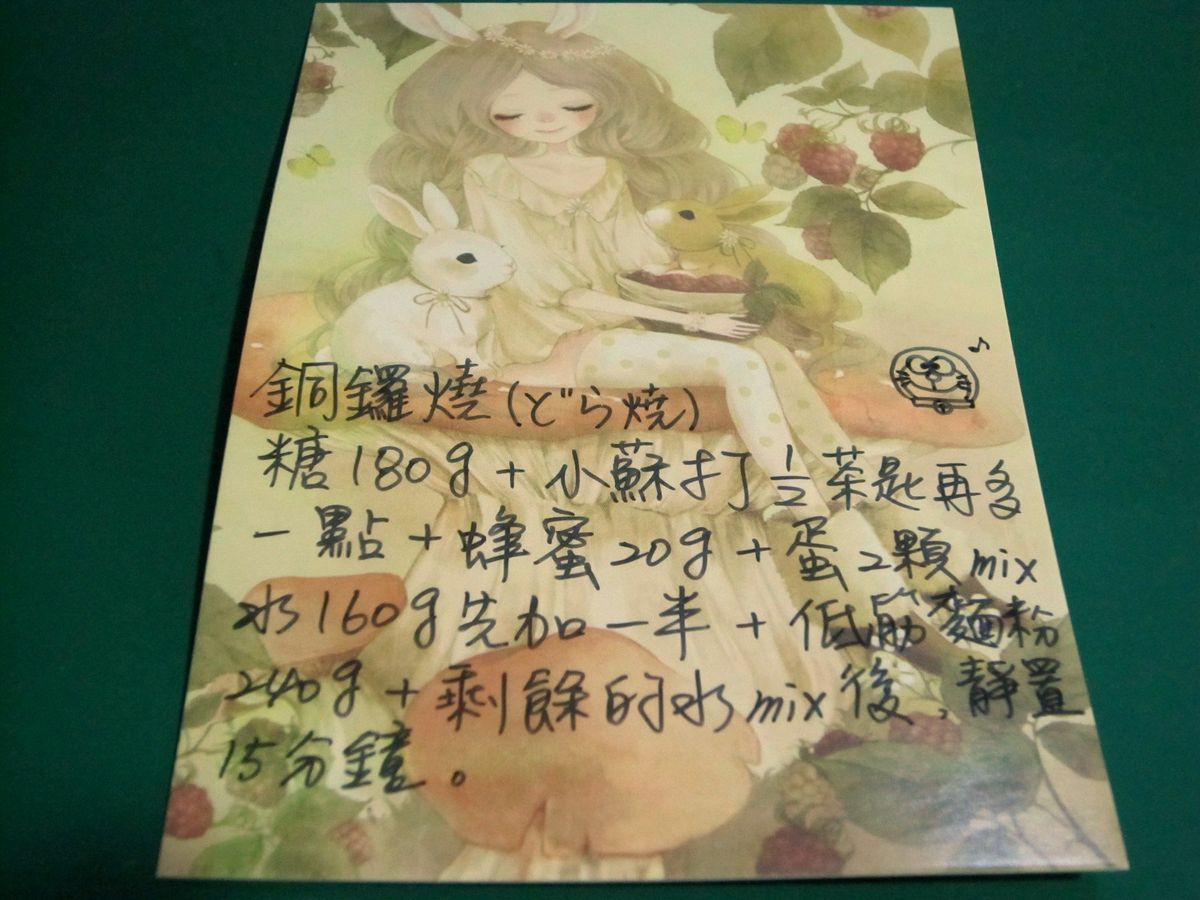 銅鑼燒(どら焼)
糖180g+小蘇打½茶匙再多
一點+蜂蜜20g+蛋2顆mix
水160g先加一半+低筋麵粉
240g+剩餘的水mix後,靜置
15分鐘。